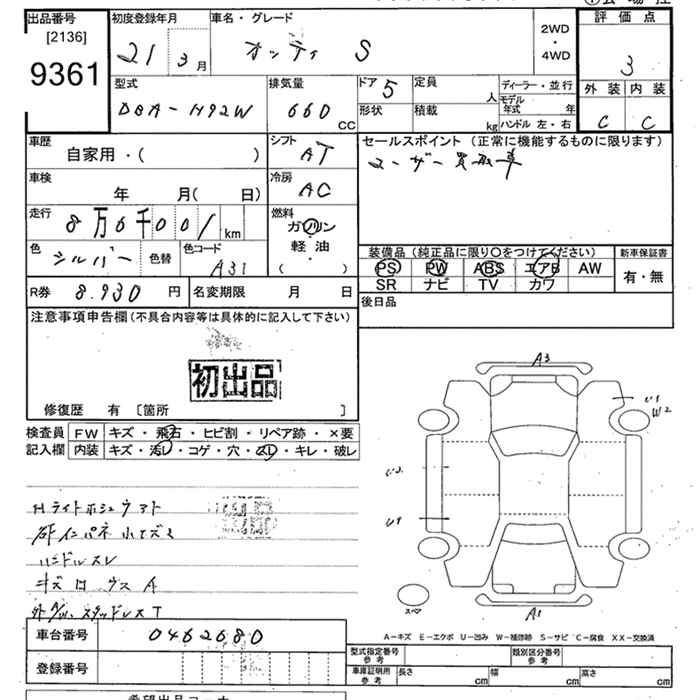 出品番号
[2136]
9361
初度登録年月
21 3月
車名・グレード
オッティ S
2WD
・
4WD
評価点
3
外装 内装
C C
型式
DBA-H92W
排気量
660 CC
ドア 5
形状
定員 人
積載 kg
ディーラー・並行
モデル年式 年
ハンドル 左・右
車歴
自家用・( )
シフト
AT
車検
年 月( 日)
冷房
AC
走行
8万6千001km
燃料
ガソリン
軽油
・
( )
色
シルバー
色替
色コード
A31
セールスポイント (正常に機能するものに限ります)
ユーザー買取車
装備品 (純正品に限り○をつけてください)
PS PW ABS エアB AW
SR ナビ TV カワ
新車保証書
有・無
R券 8.930 円
名変期限 月 日
後日品
注意事項申告欄(不具合内容等は具体的に記入して下さい)
初出品
修復歴 有 〔箇所 〕
検査員記入欄
FW キズ・飛石・ヒビ割・リペア跡・×要
内装 キズ・汚レ・コゲ・穴・スレ・キレ・破レ
Hライト
ハンドルスレ
スタッドレスT
A3
U1
W2
U2
U1
スペア
A1
車台番号 0462680
登録番号
A-キズ E-エクボ U-凹み W-補修跡 S-サビ C-腐食 XX-交換済
型式指定番号
参考
類別区分番号
参考
車庫証明用
参考
長さ cm 幅 cm 高さ cm
希望出品コーナー